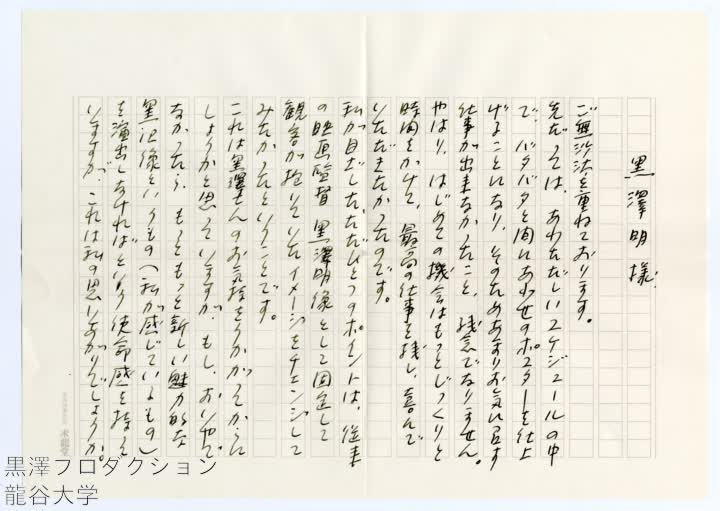 黒澤明様
ご無沙汰を重ねております。
先だっては、あわただしいスケジュールの中
で、バタバタと間にあわせのポスターを仕上
げることになり、そのためあまりお気に召す
仕事が出来なかったこと、残念でなりません。
やはり、はじめての機会はもっとじっくりと
時間をかけて、最高の仕事を残し、喜んで
いただきたかったのです。
私が目ざしたただひとつのポイントは、従来
の映画監督 黒澤明像として固定して
観客が抱いていたイメージをチェンジして
みたかったということです。
これは黒澤さんのお気持をうかがってからに
しようかと思っていますが、もし、おいやで
なかったら、もっともっと新しい魅力的な
黒沢像というもの(私が感じているもの)
を演出しなければという使命感を持って
いますが、これは私の思いあがりでしょうか。
黒澤プロダクション
龍谷大学